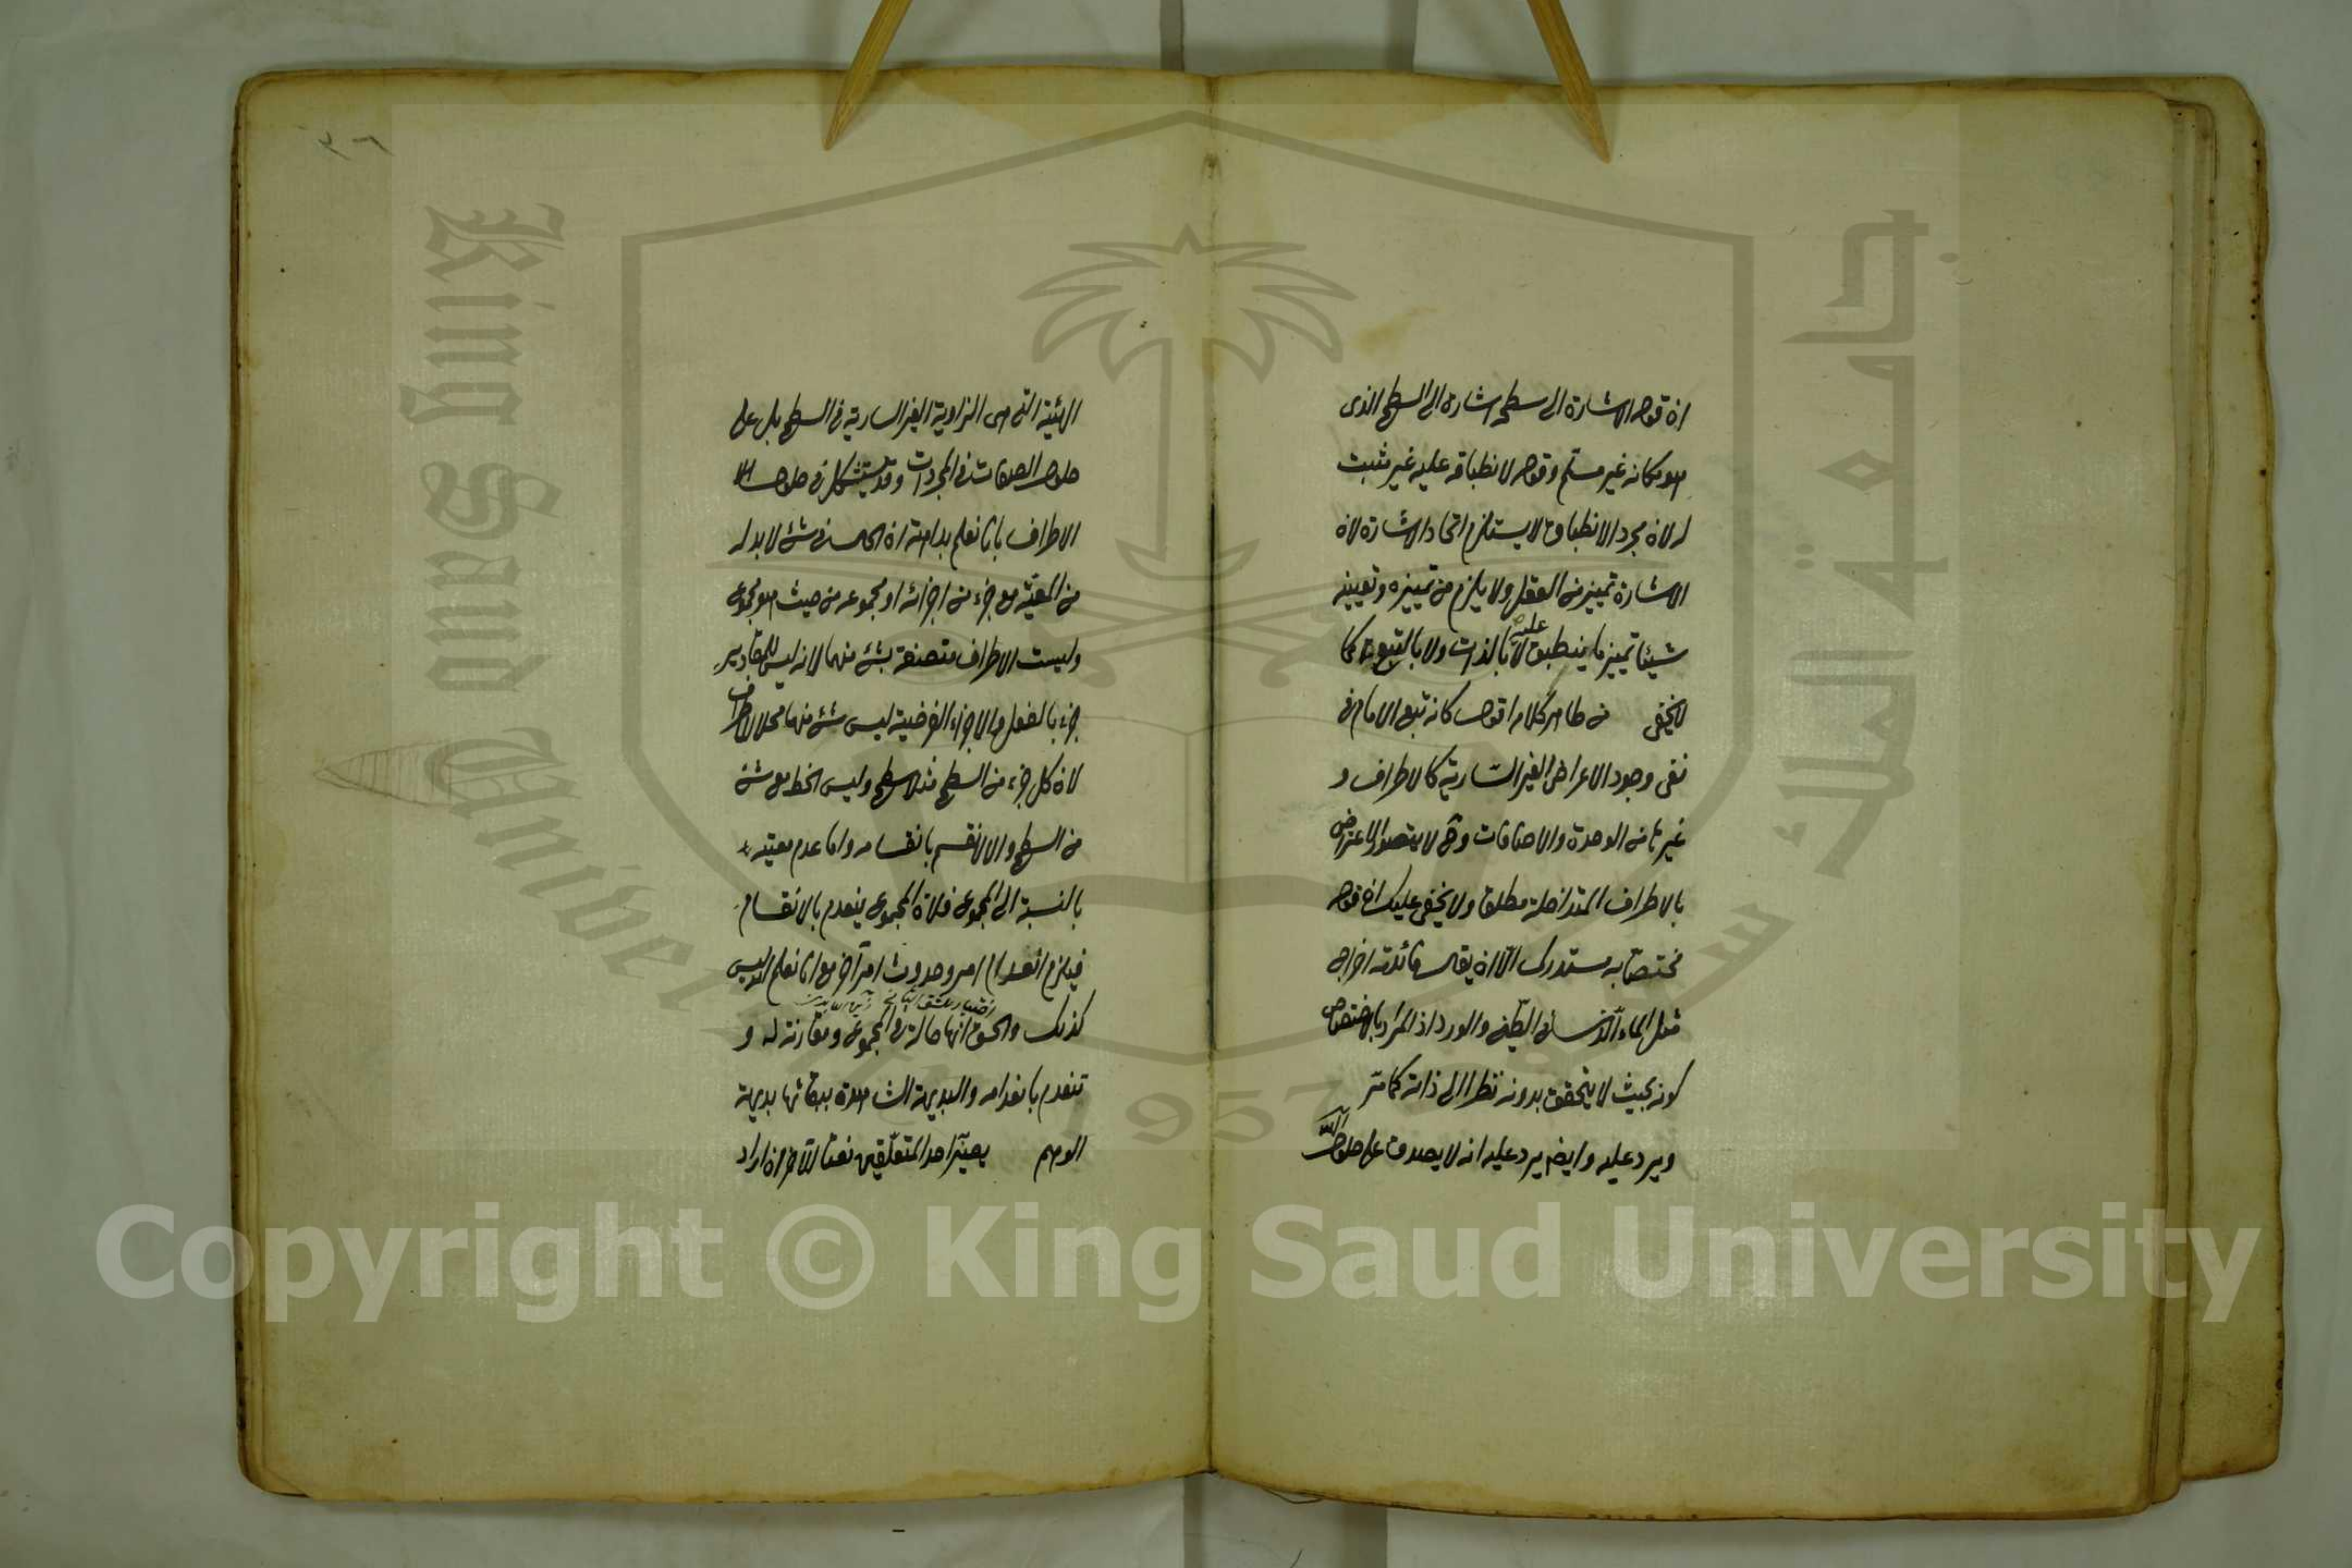 ان قوله الاشارة الى سطحه اشارة الى السطح الذى
هو مكانه غير مسلم وقوله لانطباقه عليه غير مثبت
له لان مجرد الانطباق لا يستلزم اتحاد الاشارة لان
الاشارة تمييز من العقل ولا يلزم من تمييزه وتعيينه
شيئا تمييز ما ينطبق عليه لا بالذات ولا بالتبع كما
لا يخفى من ظاهر كلامه اقول كانه تبع الامام فى
نفى وجود الاعراض الغير السارية كالاطراف و
غيرها من الوحدة والاضافات وح لا يتصور الاعتراض
بالاطراف المتداخلة مطلقا ولا يخفى عليك ان قوله
مختصا به مستدرك الا ان يقال فائدته اخراج
مثل الماء الذى سرى الطين والورد اذ المراد بالاختصاص
كونه بحيث لا يتحقق بدونه نظرا الى ذاته كما مر
ويرد عليه وايضا يرد عليه انه لا يصدق على حلول
٣٦
الهيئة التى هى الزاوية الغير السارية فى السطح بل على
حلول الصفات فى المجردات وقد يستشكل فى حلول
الاطراف بانا نعلم بداهة ان الحال فى شئ لا بد له
من المعية مع جزء من اجزائه او مجموعه من حيث هو مجموع
وليست الاطراف متصفة بشئ منهما لانه ليس للمقادير
جزء بالفعل والاجزاء الفرضية ليس شئ منها محلا للاطراف
لان كل جزء من السطح مثلا سطح وليس الخط مع شئ
من السطح والا لانقسم بانقسامه واما عدم معيته
بالنسبة الى المجموع فلان المجموع ينعدم بالانقسام
فيلزم انعدام امر وحدوث امر آخر مع انا نعلم انه ليس
كذلك والحق انها حالة فى المجموع ومقارنة له و
تنعدم بانعدامه والبديهة الشاهدة ببقائها بديهة
الوهم يصير احد المتعلقين نعتا للآخر ان اراد
Copyright © King Saud University
King Saud University
جامعة الملك سعود
1957